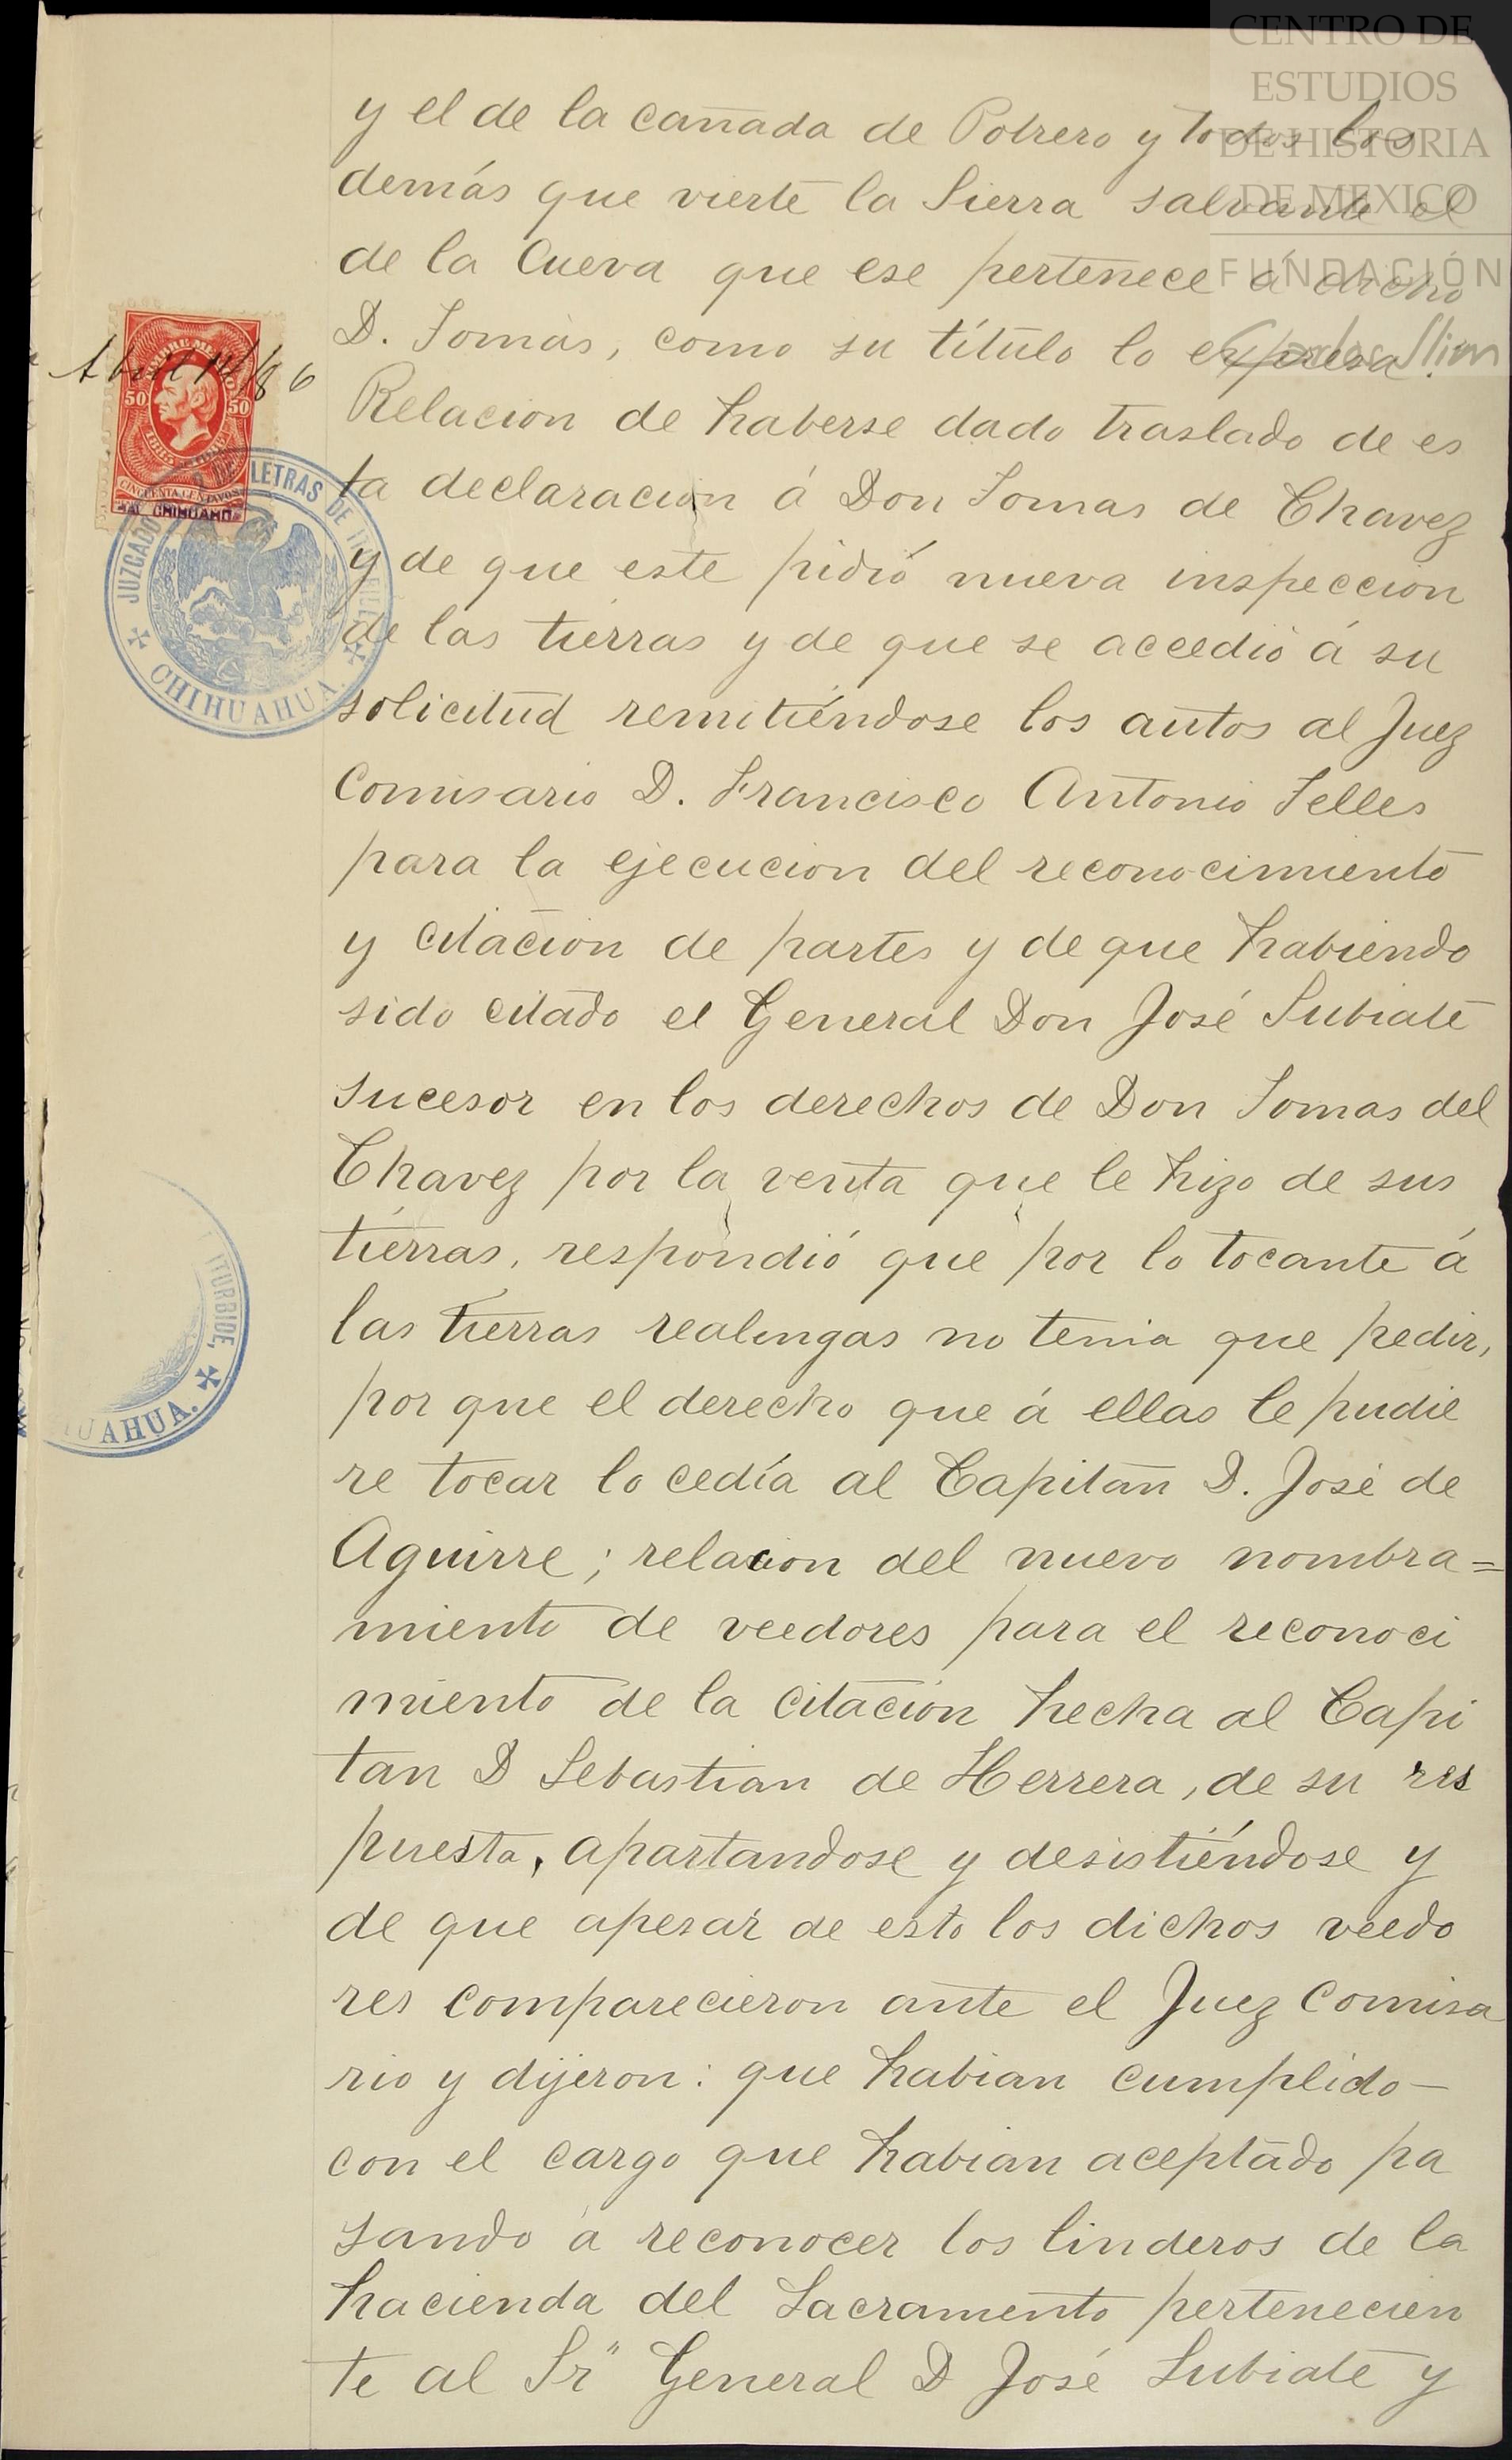 CENTRO DE
ESTUDIOS
DE HISTORIA
DE MEXICO
FUNDACIÓN
Carlos Slim
y el de la cañada de Potrero y todos los
demás que vierte la Sierra salvante el
de la Cueva que ese pertenece á dicho
D. Tomás, como su título lo expresa.
Relacion de haberse dado traslado de es
ta declaracion á Don Tomas de Chavez
y de que este pidió nueva inspeccion
de las tierras y de que se accedió á su
solicitud remitiéndose los autos al Juez
Comisario D. Francisco Antonio Telles
para la ejecucion del reconocimiento
y citacion de partes y de que habiendo
sido citado el General Don José Subiate
sucesor en los derechos de Don Tomas del
Chavez por la venta que le hizo de sus
tierras, respondió que por lo tocante á
las tierras realingas no tenia que pedir,
por que el derecho que á ellas le pudie
re tocar lo cedía al Capitan D. José de
Aguirre; relacion del nuevo nombra=
miento de veedores para el reconoci
miento de la citacion hecha al Capi
tan D Sebastian de Herrera, de su res
puesta, apartandose y desistiéndose y
de que apesar de esto los dichos veedo
res comparecieron ante el Juez Comisa
rio y dijeron: que habian cumplido—
con el cargo que habian aceptado pa
sando á reconocer los linderos de la
hacienda del Sacramento pertenecien
te al Sr" General D José Subiate y
Abril 14/86
50 50
CINCUENTA CENTAVOS
CHIHUAHUA
JUZGADO LETRAS DE
CHIHUAHUA.
ITURBIDE,
UAHUA.